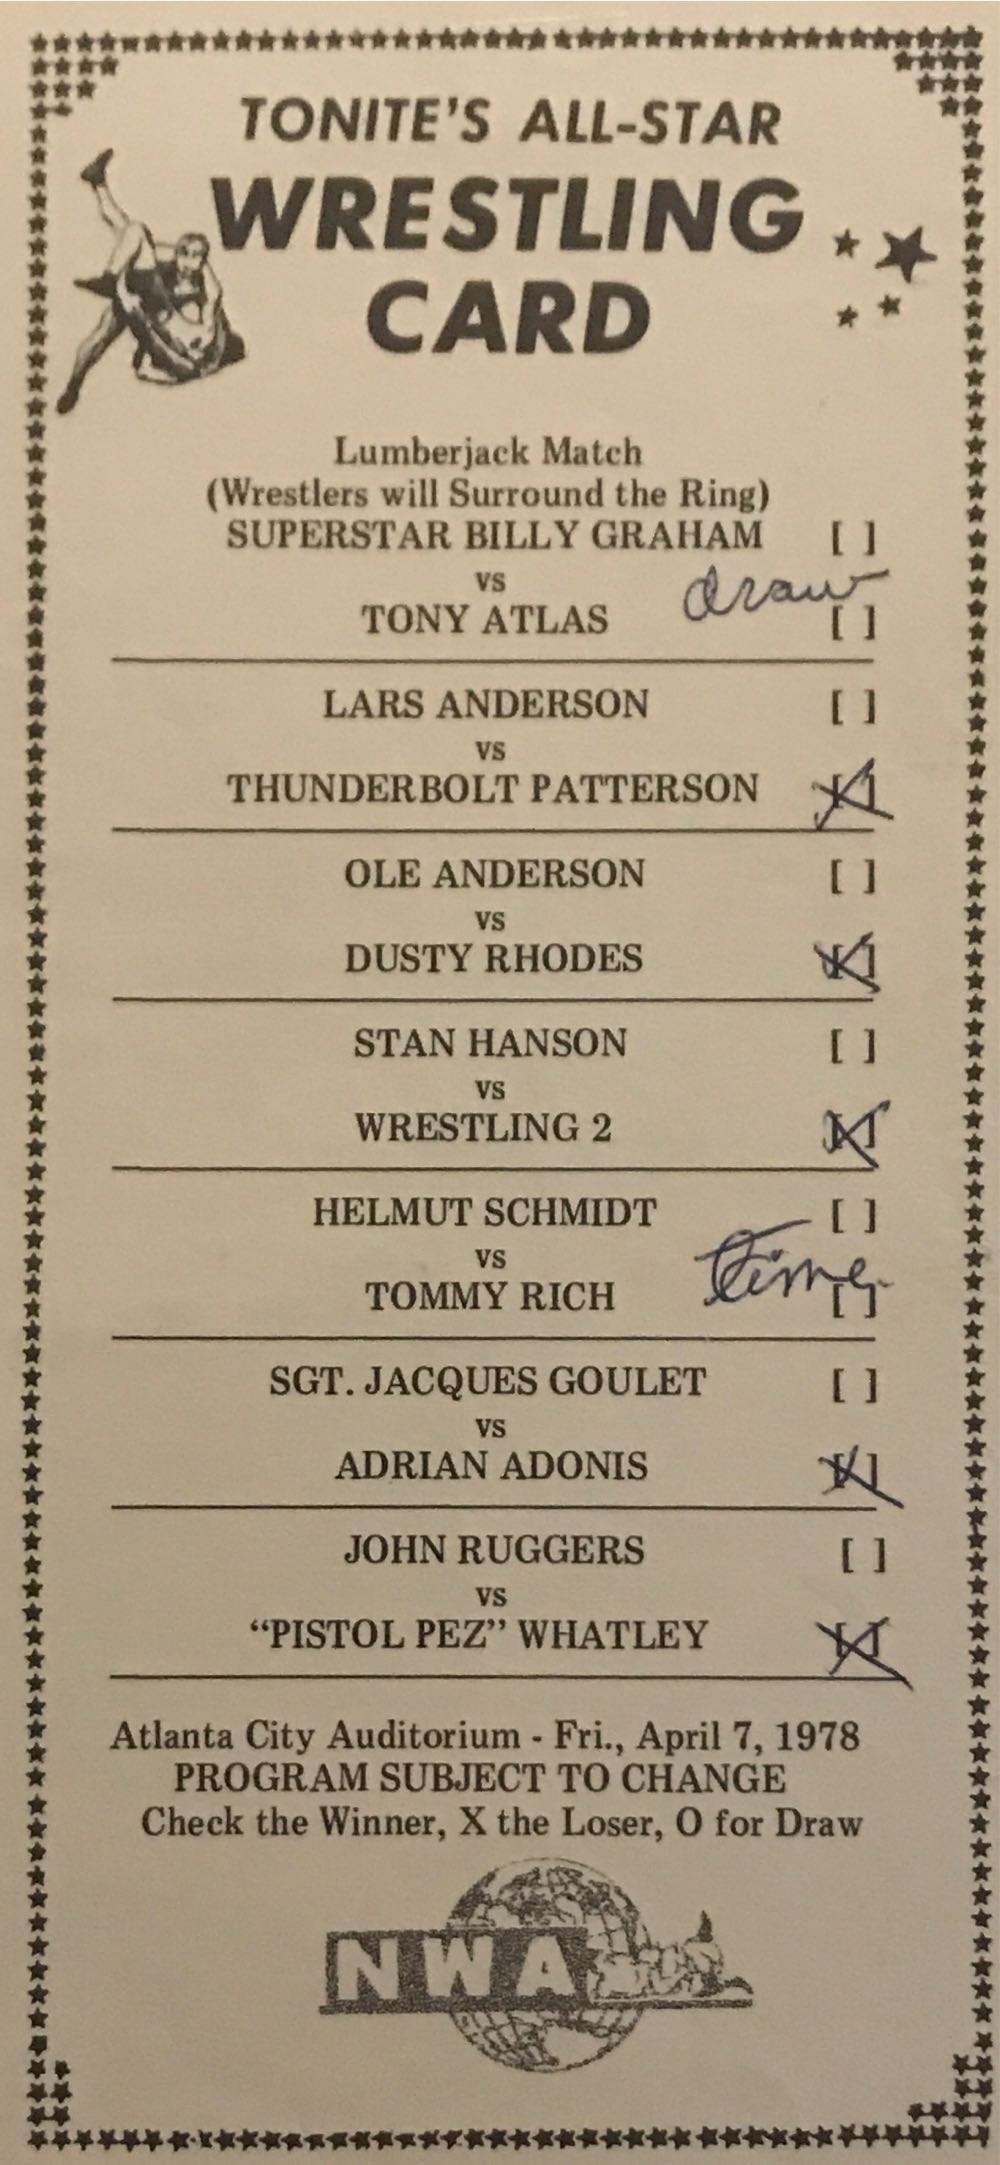 TONITE'S ALL-STAR
WRESTLING
CARD
Lumberjack Match
(Wrestlers will Surround the Ring)
SUPERSTAR BILLY GRAHAM [ ]
vs
draw
TONY ATLAS [ ]
LARS ANDERSON [ ]
vs
THUNDERBOLT PATTERSON [X]
OLE ANDERSON [ ]
vs
DUSTY RHODES [X]
STAN HANSON [ ]
vs
WRESTLING 2 [X]
HELMUT SCHMIDT [ ]
vs
time
TOMMY RICH [ ]
SGT. JACQUES GOULET [ ]
vs
ADRIAN ADONIS [X]
JOHN RUGGERS [ ]
vs
“PISTOL PEZ” WHATLEY [X]
Atlanta City Auditorium - Fri., April 7, 1978
PROGRAM SUBJECT TO CHANGE
Check the Winner, X the Loser, O for Draw
NWA